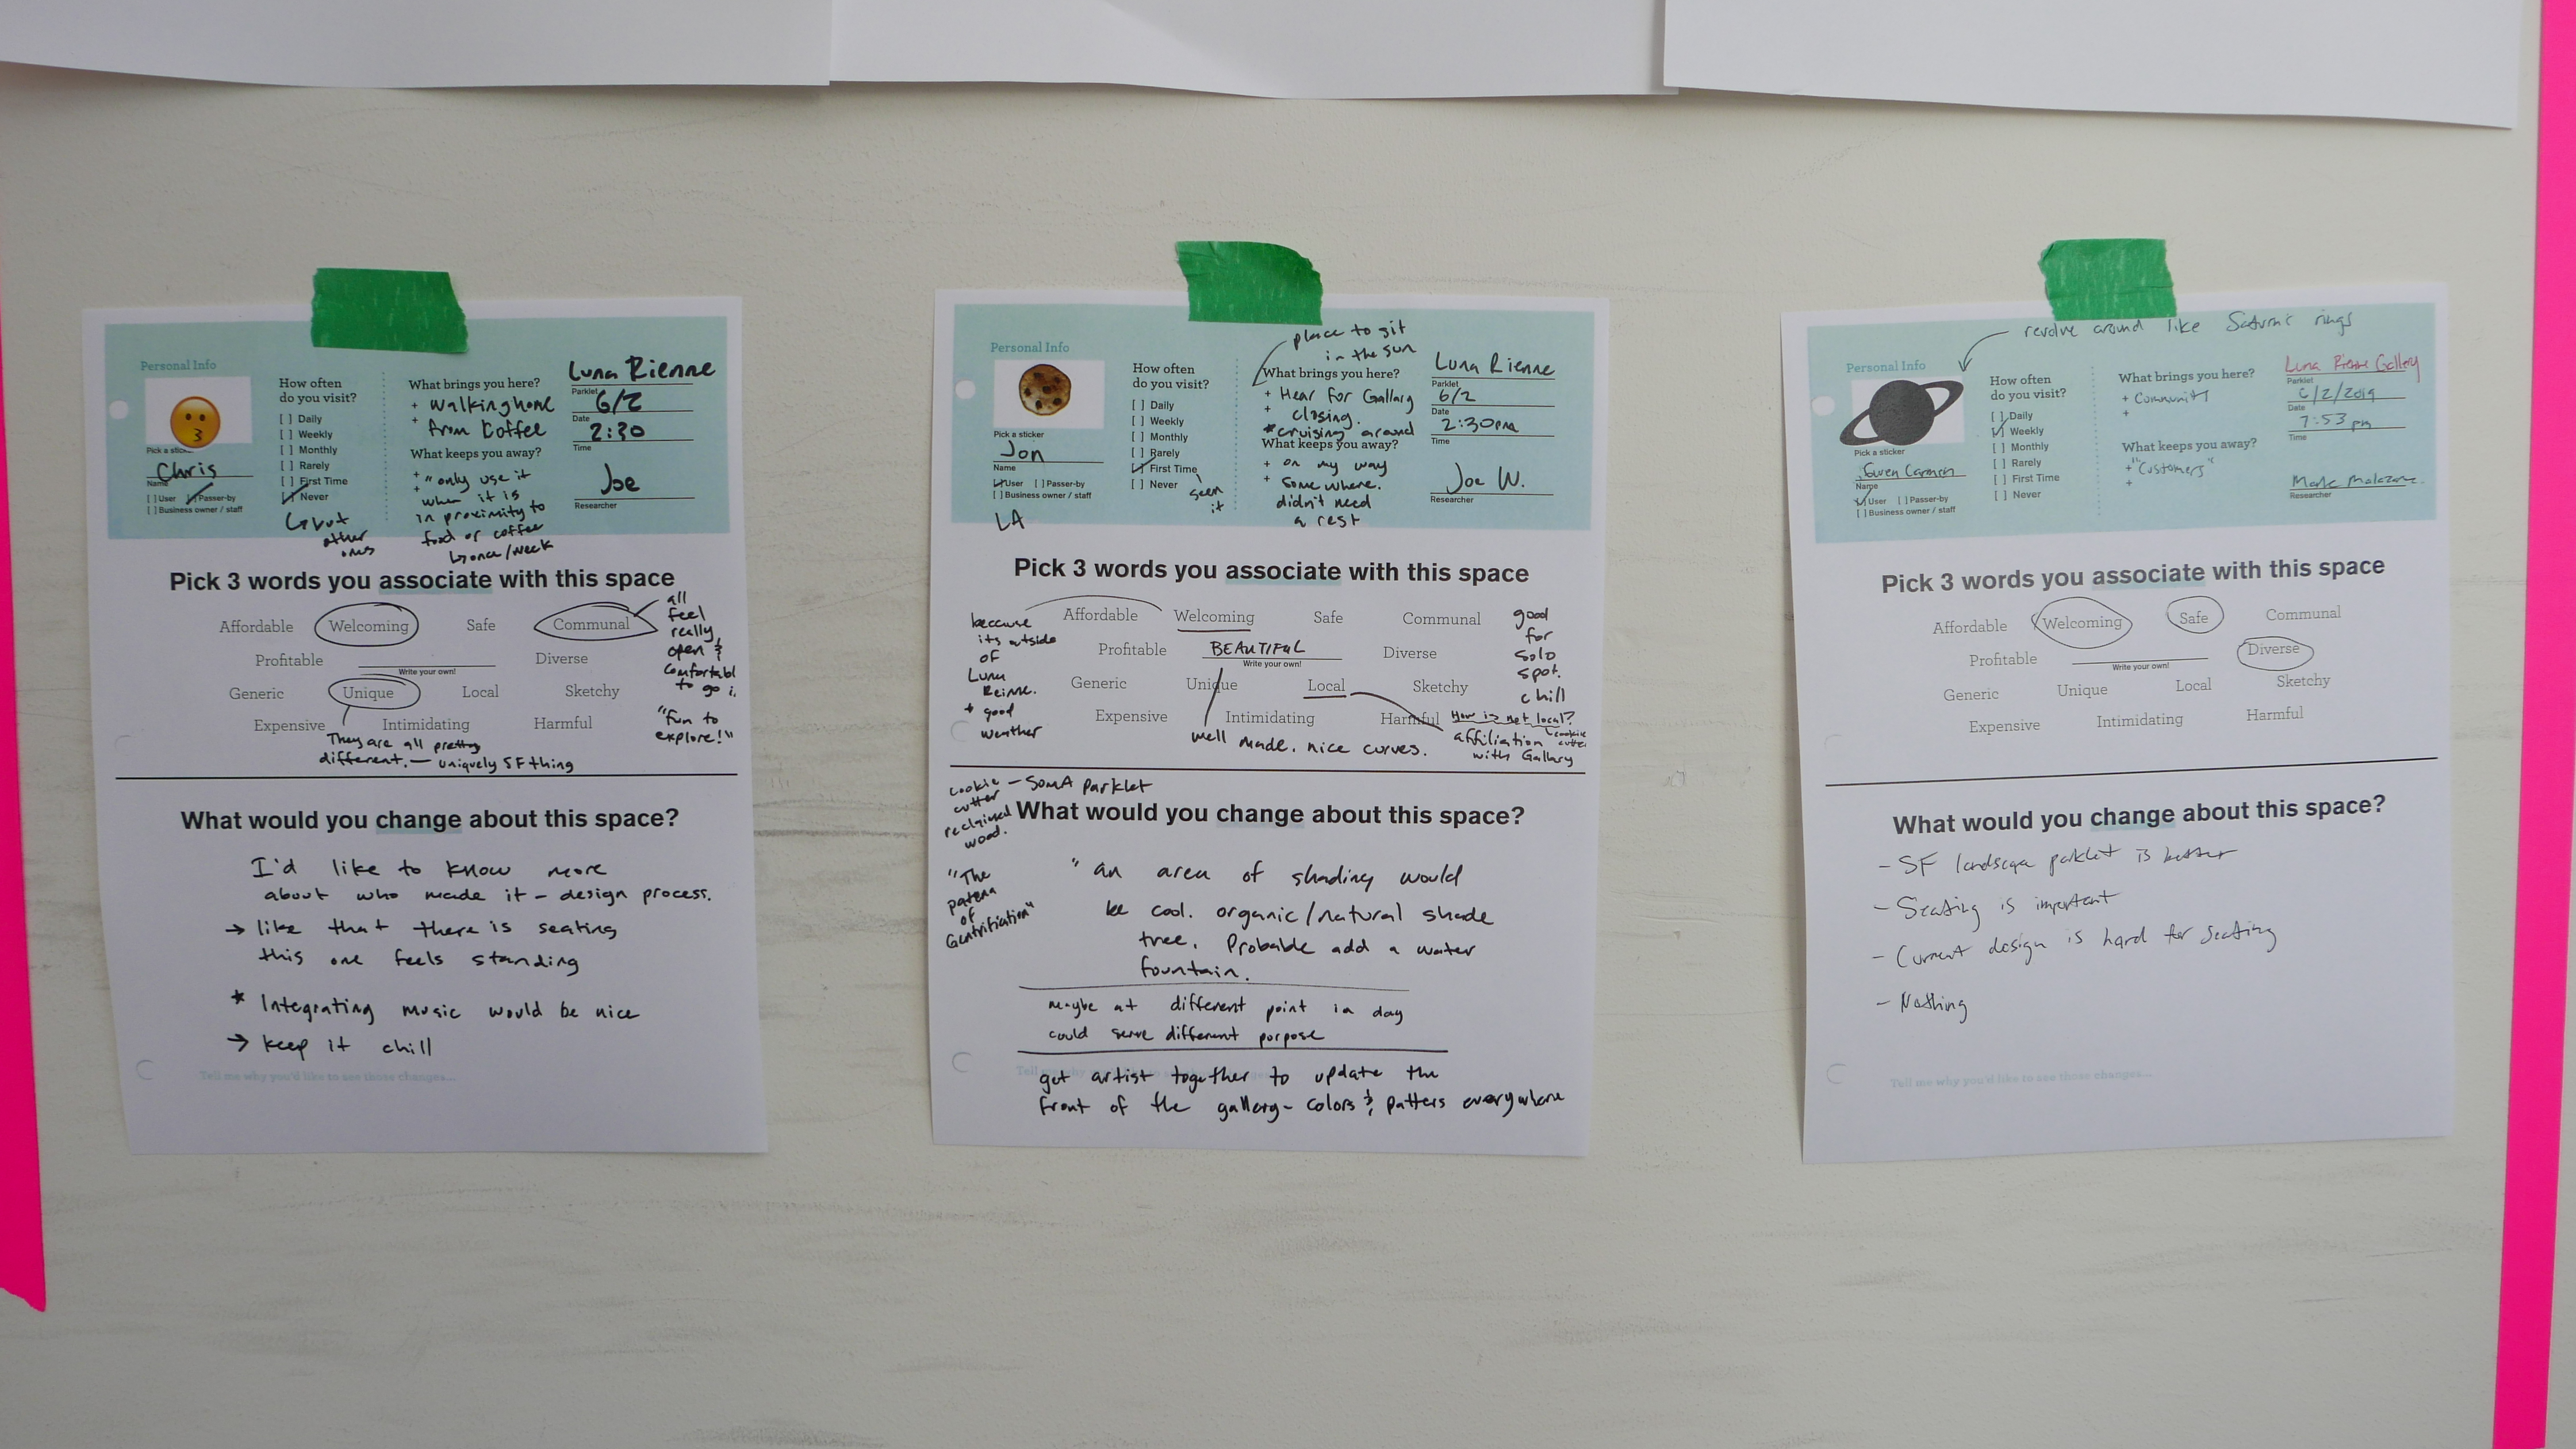 Personal Info
Pick a sticker
Chris
Name
[ ] User [ ] Passer-by
[ ] Business owner / staff
How often
do you visit?
[ ] Daily
[ ] Weekly
[ ] Monthly
[ ] Rarely
[ ] First Time
[ ] Never
↳ but
other
ones
What brings you here?
+ Walking home
+ from Coffee
What keeps you away?
+ "only use it
+ when it is
in proximity to
food or coffee
↳ once/week
Luna Rienne
Parklet
6/2
Date
2:30
Time
Joe
Researcher
Pick 3 words you associate with this space
Affordable Welcoming Safe Communal
Profitable Diverse
Write your own!
Generic Unique Local Sketchy
Expensive Intimidating Harmful
all
feel
really
open &
comfortabl
to go i.
"fun to
explore!"
They are all pretty
different. — uniquely SF thing
What would you change about this space?
I'd like to know more
about who made it - design process.
→ like that there is seating
this one feels standing
* Integrating music would be nice
→ keep it chill
Tell me why you'd like to see those changes...
place to sit
in the sun
Personal Info
Pick a sticker
Jon
Name
[ ] User [ ] Passer-by
[ ] Business owner / staff
LA
How often
do you visit?
[ ] Daily
[ ] Weekly
[ ] Monthly
[ ] Rarely
[ ] First Time
[ ] Never
seen
it
What brings you here?
+ Hear for Gallary
+ closing.
* cruising around
What keeps you away?
+ on my way
+ some where.
didn't need
a rest
Luna Rienne
Parklet
6/2
Date
2:30pm
Time
Joe W.
Researcher
Pick 3 words you associate with this space
Affordable Welcoming Safe Communal
Profitable BEAUTIFUL Diverse
Write your own!
Generic Unique Local Sketchy
Expensive Intimidating Harmful
because
its outside
of
Luna
Reinne.
+ good
weather
good
for
solo
spot.
chill
well made. nice curves.
How is net local?
cookie
cutter
affiliation
with Gallary
cookie — SOMA Parklet
cutter
reclaimed
wood.
"The
patern
of
Gentrifiation"
What would you change about this space?
" an area of shading would
be cool. organic/natural shade
tree. Probable add a water
fountain.
maybe at different point in day
could serve different porpose
Tell me why
get artist together to update the
front of the gallery - colors & patters everywhere
revolve around like Saturn's rings
Personal Info
Pick a sticker
Gwen Carmen
Name
[ ] User [ ] Passer-by
[ ] Business owner / staff
How often
do you visit?
[ ] Daily
[ ] Weekly
[ ] Monthly
[ ] Rarely
[ ] First Time
[ ] Never
What brings you here?
+ Community
+
What keeps you away?
+ "Customers"
+
Luna Rienne Gallery
Parklet
6/2/2019
Date
7:53 pm
Time
Mark
Researcher
Pick 3 words you associate with this space
Affordable Welcoming Safe Communal
Profitable Diverse
Write your own!
Generic Unique Local Sketchy
Expensive Intimidating Harmful
What would you change about this space?
- SF landscape parklet is better
- Seating is important
- Current design is hard for seating
- Nothing
Tell me why you'd like to see those changes...